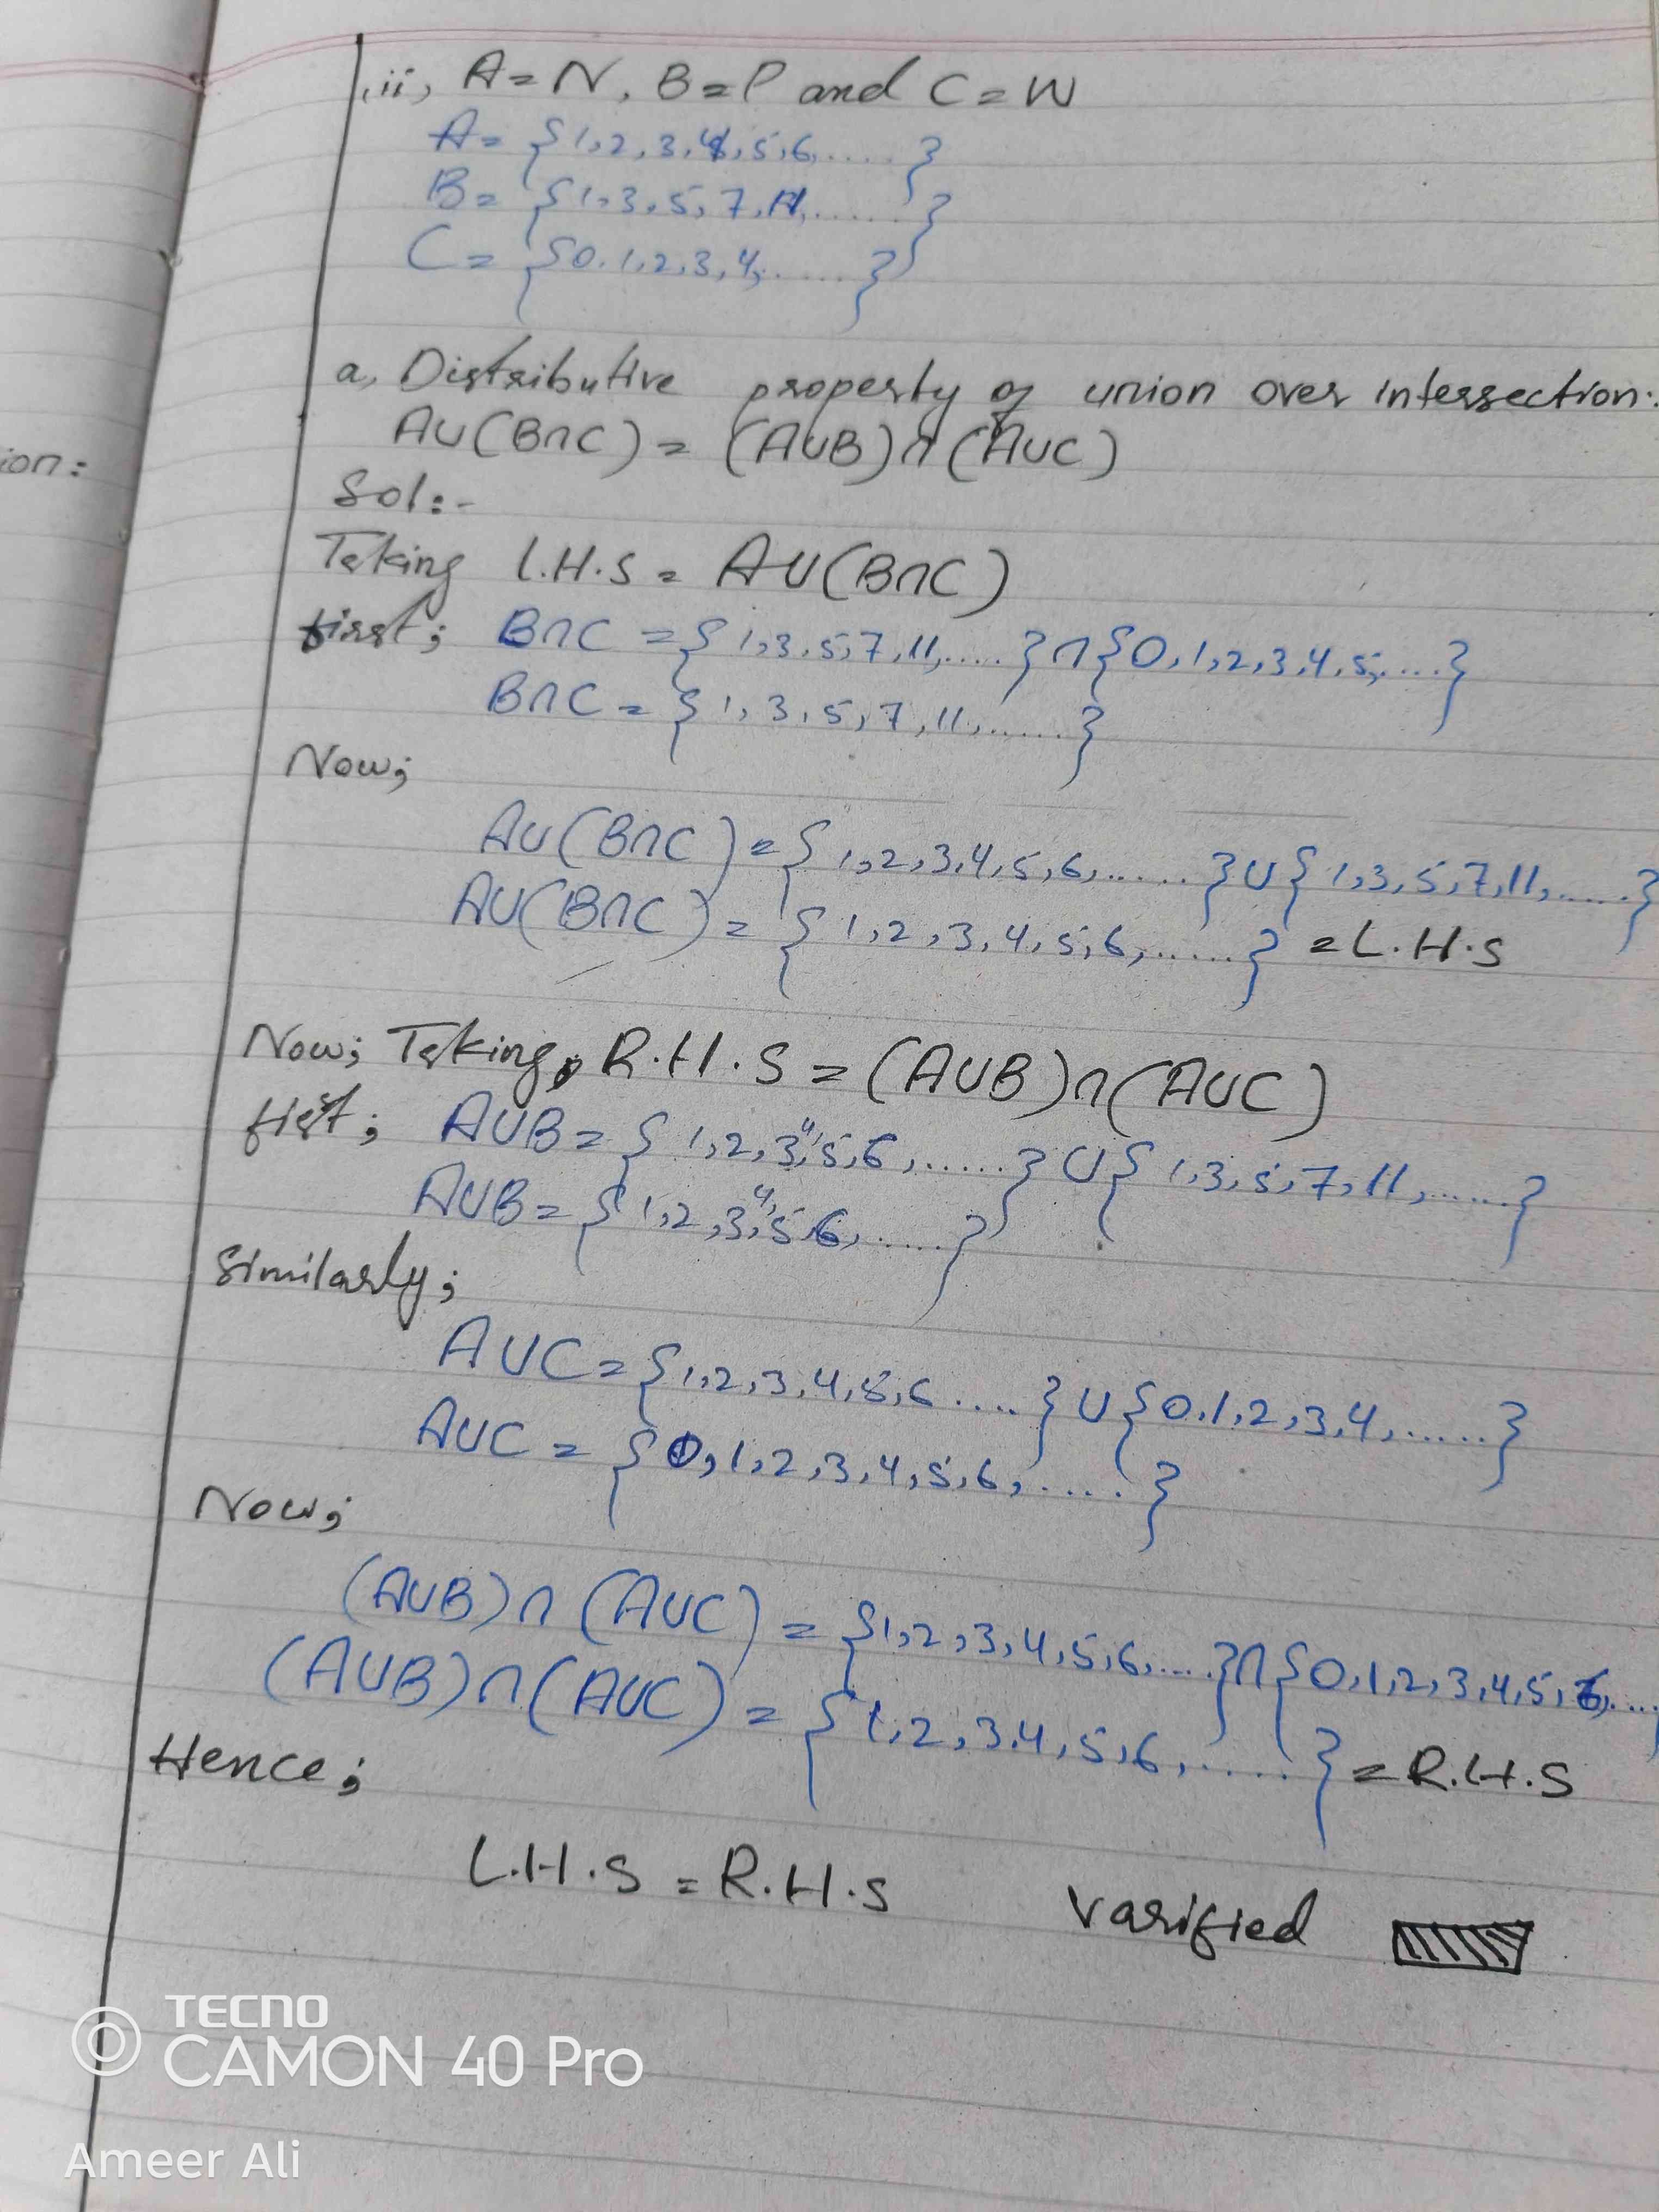 ii, A = N, B = P and C = W
A = {1,2,3,4,5,6,.....}
B = {1,3,5,7,11,......}
C = {0,1,2,3,4,......}
a, Distributive property of union over intersection:
A∪(B∩C) = (A∪B)∩(A∪C)
Sol:-
Taking L.H.S = A∪(B∩C)
first; B∩C = {1,3,5,7,11,.....}∩{0,1,2,3,4,5,....}
B∩C = {1,3,5,7,11,......}
Now;
A∪(B∩C) = {1,2,3,4,5,6,......}∪{1,3,5,7,11,.....}
A∪(B∩C) = {1,2,3,4,5,6,......} = L.H.S
Now; Taking, R.H.S = (A∪B)∩(A∪C)
first; A∪B = {1,2,3,4,5,6,......}∪{1,3,5,7,11,......}
A∪B = {1,2,3,4,5,6,.....}
Similarly;
A∪C = {1,2,3,4,5,6....}∪{0,1,2,3,4,......}
A∪C = {0,1,2,3,4,5,6,.....}
Now;
(A∪B)∩(A∪C) = {1,2,3,4,5,6,....}∩{0,1,2,3,4,5,6,....
(A∪B)∩(A∪C) = {1,2,3,4,5,6,......} = R.H.S
Hence;
L.H.S = R.H.S varified
ion:
TECNO
CAMON 40 Pro
Ameer Ali